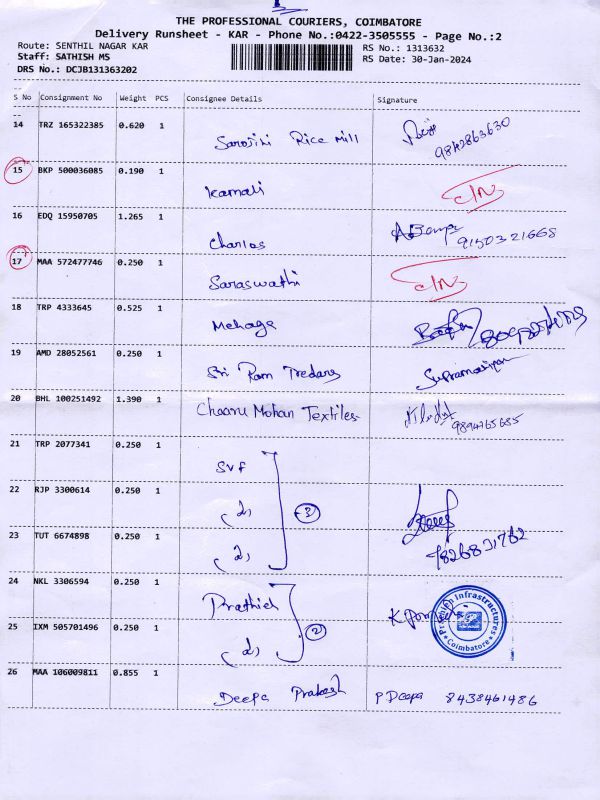 THE PROFESSIONAL COURIERS, COIMBATORE
Delivery Runsheet - KAR - Phone No.:0422-3505555 - Page No.:2
Route: SENTHIL NAGAR KAR RS No.: 1313632
Staff: SATHISH MS RS Date: 30-Jan-2024
DRS No.: DCJB131363202
S No Consignment No Weight PCS Consignee Details Signature
14 TRZ 165322385 0.620 1 Sarojini Rice Mill 9842863630
15 BKP 500036085 0.190 1 Kamali
16 EDQ 15950705 1.265 1 Charlas 9150321668
17 MAA 572477746 0.250 1 Saraswathi
18 TRP 4333645 0.525 1 Mehaga
19 AMD 28052561 0.250 1 Sri Ram Tredars
20 BHL 100251492 1.390 1 Chaaru Mohan Textiles 9894765685
21 TRP 2077341 0.250 1 SVF
22 RJP 3300614 0.250 1 (2) 3
23 TUT 6674898 0.250 1 (2) 9826831762
24 NKL 3306594 0.250 1 Prathieh
25 IXM 505701496 0.250 1 (2) 2
Infrastructures
Coimbatore
26 MAA 106009811 0.855 1 Deepa Prakash P Deepa 8438461486